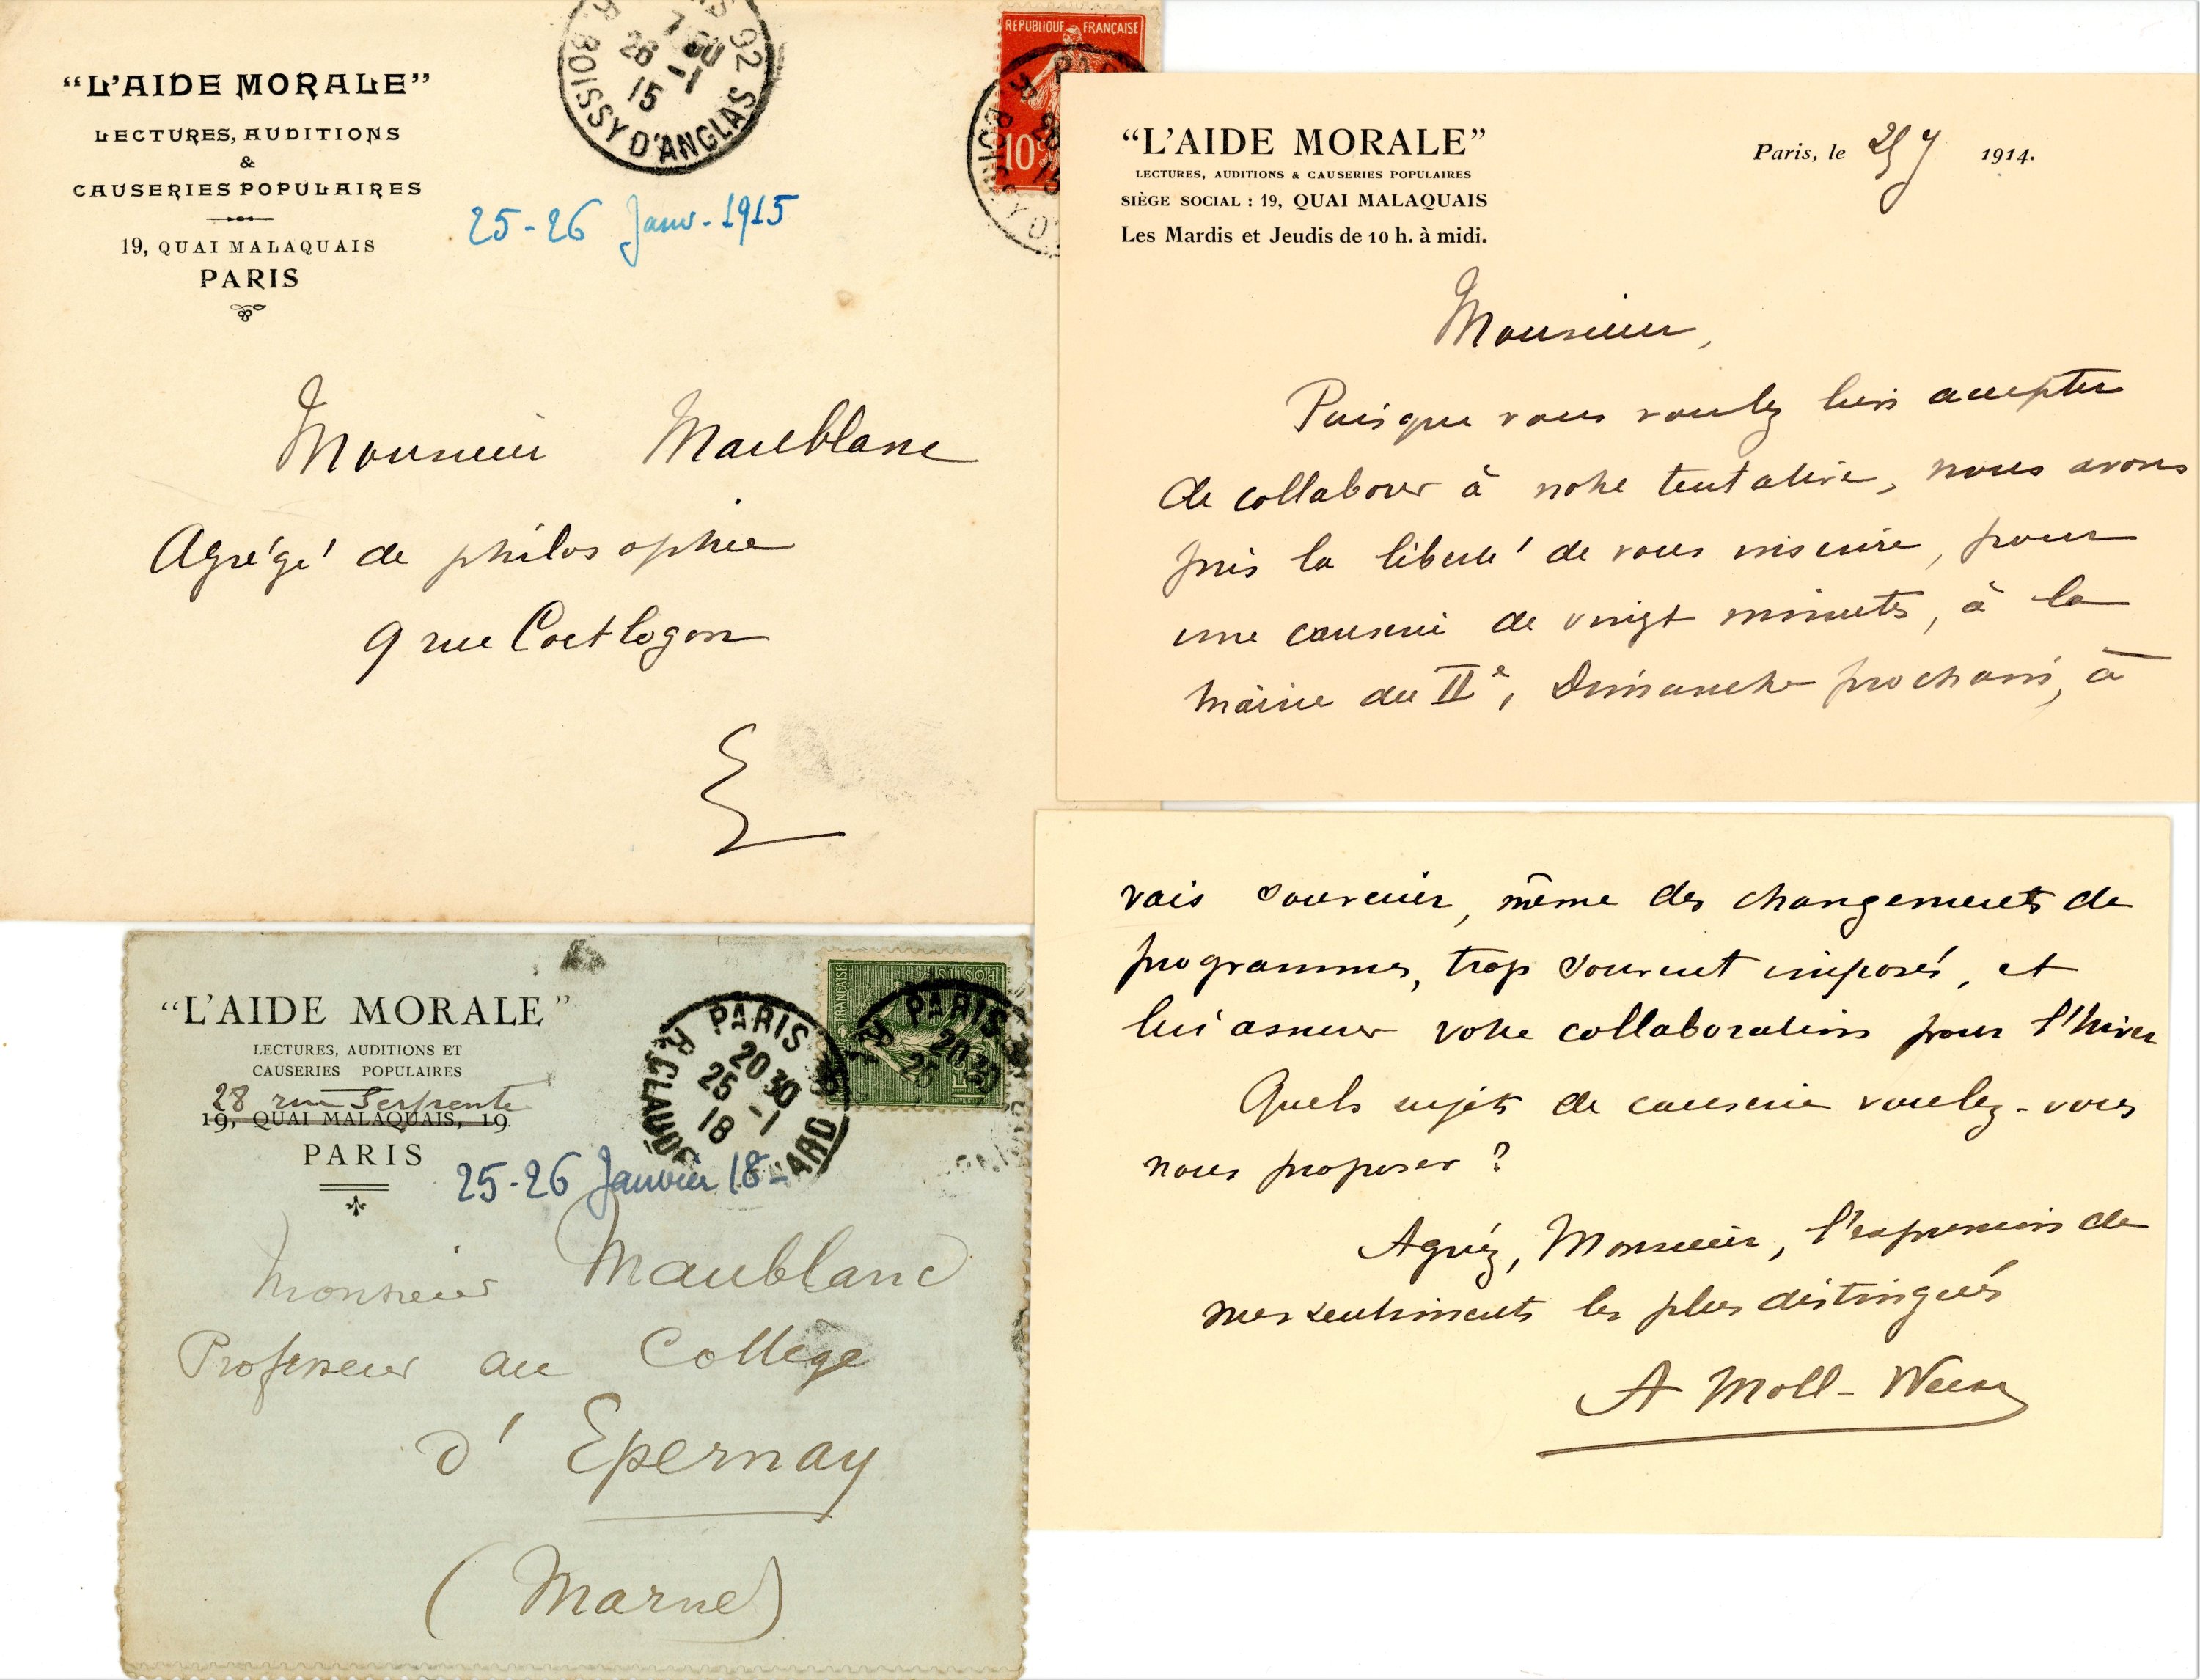 "L'AIDE MORALE"
LECTURES, AUDITIONS
&
CAUSERIES POPULAIRES
19, QUAI MALAQUAIS
PARIS
92
7 30
26 -1
15
R. BOISSY D'ANGLAS
REPUBLIQUE FRANÇAISE
10c
25-26 Janv-1915
Monsieur Maublanc
Agrégé de philosophie
9 rue Coetlogon
E
"L'AIDE MORALE"
LECTURES, AUDITIONS & CAUSERIES POPULAIRES
SIÈGE SOCIAL : 19, QUAI MALAQUAIS
Les Mardis et Jeudis de 10 h. à midi.
Paris, le 1914.
Monsieur,
Puisque vous voulez bien accepter
de collaborer à notre tentative, nous avons
pris la liberté de vous inscrire, pour
une causerie de vingt minutes, à la
Mairie du IIe, Dimanche prochain, à
"L'AIDE MORALE"
LECTURES, AUDITIONS ET
CAUSERIES POPULAIRES
28 rue Serpente
19, QUAI MALAQUAIS, 19
PARIS
PARIS
20 30
25 -1
18
R. CLAUDE ARD
FRANÇAISE
POSTES
PARIS
20 30
25
25-26 Janvier 18-
Monsieur Maublanc
Professeur au Collège
d'Epernay
(Marne)
vais souvenir, même des changements de
programmes, trop souvent imposés, et
lui assurer votre collaboration pour l'hiver
Quels sujets de causerie voulez-vous
nous proposer ?
Agréez, Monsieur, l'expression de
mes sentiments les plus distingués
A Moll-Weiss